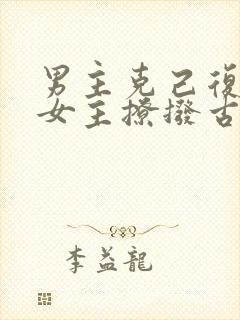 男主克己復
女主撩撥古
李益龍